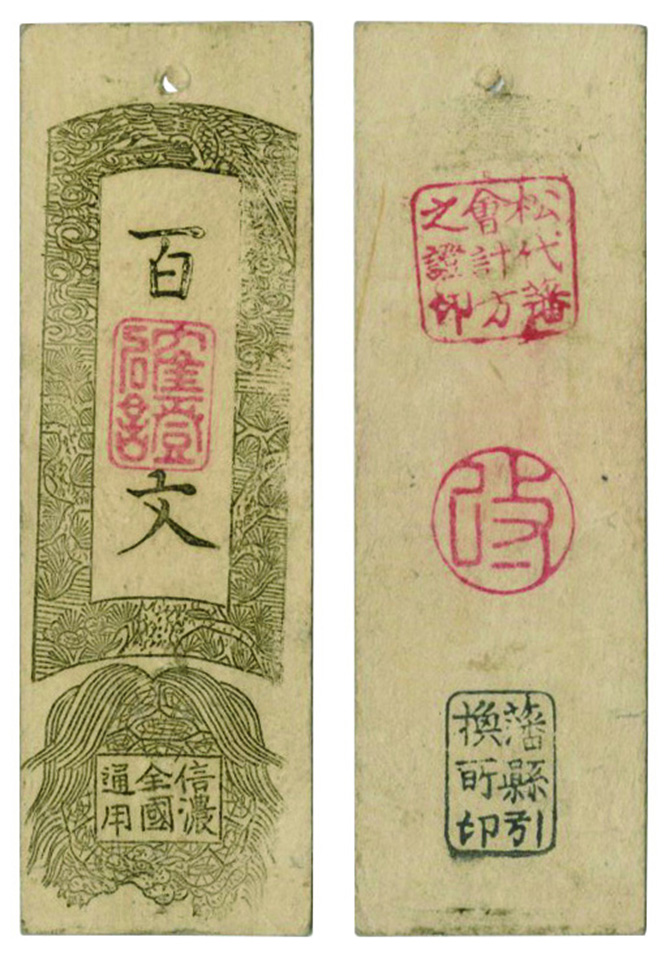 百
確證
文
信濃
全國
通用
松代藩
會計方
之證印
改
藩縣引
換所印